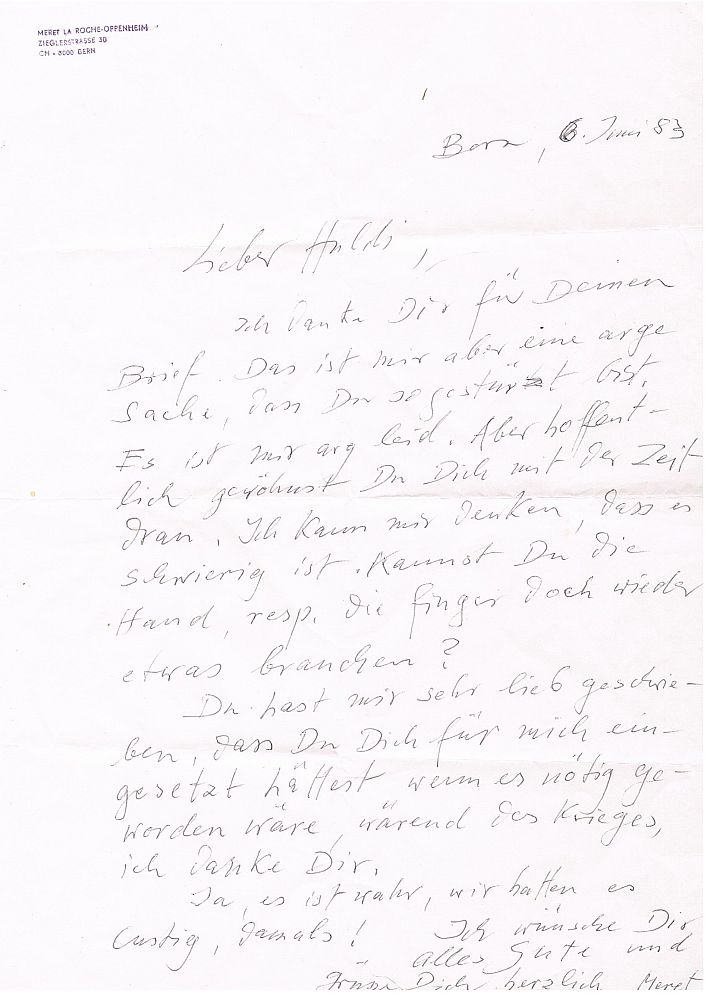 MERET LA ROCHE-OPPENHEIM
ZIEGLERSTRASSE 30
CH - 3000 BERN
Bern, 6. Juni 83
Lieber Huldi,
Ich danke Dir für Deinen
Brief. Das ist mir aber eine arge
Sache, dass Du so gestürzt bist.
Es ist mir arg leid. Aber hoffent-
lich gewöhnst Du Dich mit der Zeit
dran. Ich kann mir denken, dass es
schwierig ist. Kannst Du die
Hand, resp. die finger doch wieder
etwas brauchen?
Du hast mir sehr lieb geschrie-
ben, dass Du Dich für mich ein-
gesetzt hättest wenn es nötig ge-
worden wäre, wärend des Krieges,
ich danke Dir.
Ja, es ist wahr, wir hatten es
lustig, damals! Ich wünsche Dir
alles Gute und
Grüsse Dich herzlich Meret